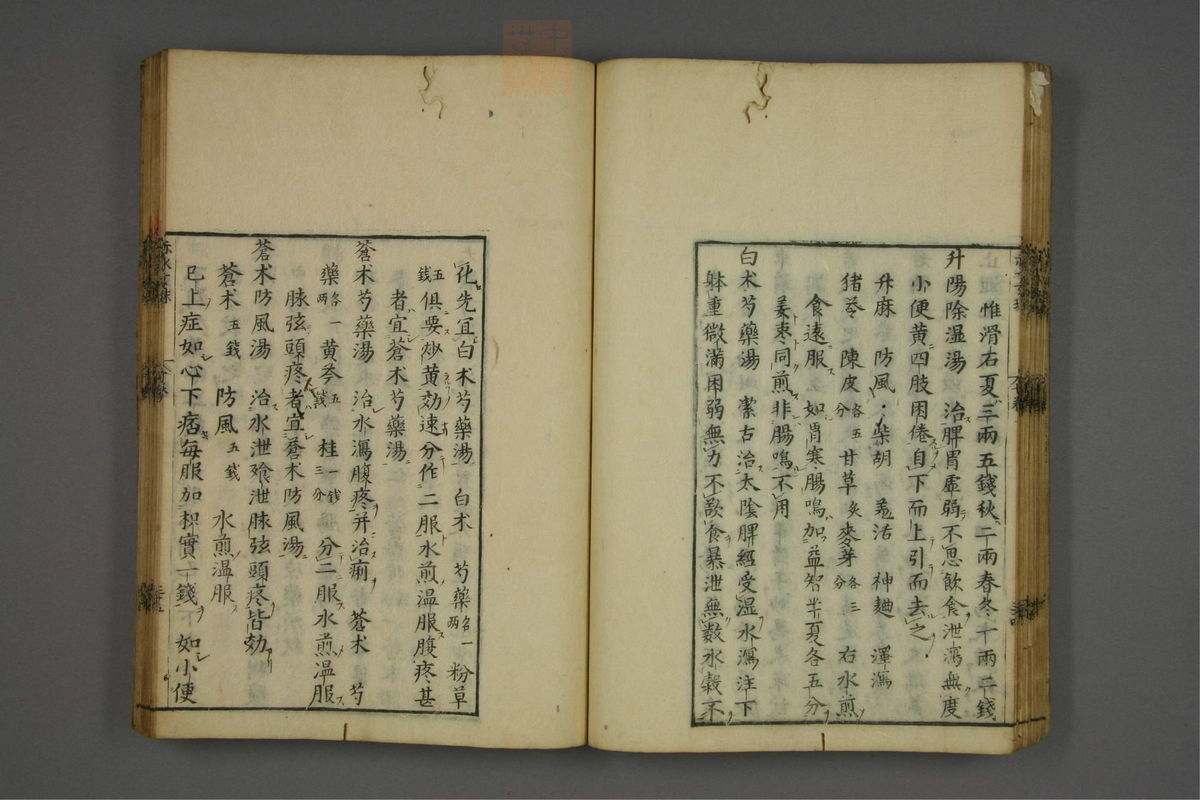 惟滑石夏三兩五錢秋二兩春冬一兩二錢
升陽除湿湯 治脾胃虛弱不思飲食泄瀉無度
小便黄四肢困倦自下而上引而去之
升麻 防風 柴胡 羗活 神麯 澤瀉
猪苓 陳皮各五分 甘草炙 麥芽各三分 右水煎
食遠服 如胃寒腸鳴加益智半夏各五分
姜枣同煎非腸鳴不用
白术芍藥湯 潔古治太陰脾經受湿水瀉注下
躰重微滿困弱無力不欲食暴泄無数水穀不
化先宜白术芍藥湯 白术 芍藥各一兩 粉草
五錢 俱要炒黄効速分作二服水煎温服腹疼甚
者宜蒼术芍藥湯
蒼术芍藥湯 治水瀉腹疼并治痢 蒼术 芍
藥各一兩 黄芩五錢 桂一錢三分 分二服水煎温服
脉弦頭疼者宜蒼术防風湯
蒼术防風湯 治水泄飱泄脉弦頭疼皆効
蒼术五錢 防風五錢 水煎温服
已上症如心下痞每服加枳實一錢 如小便